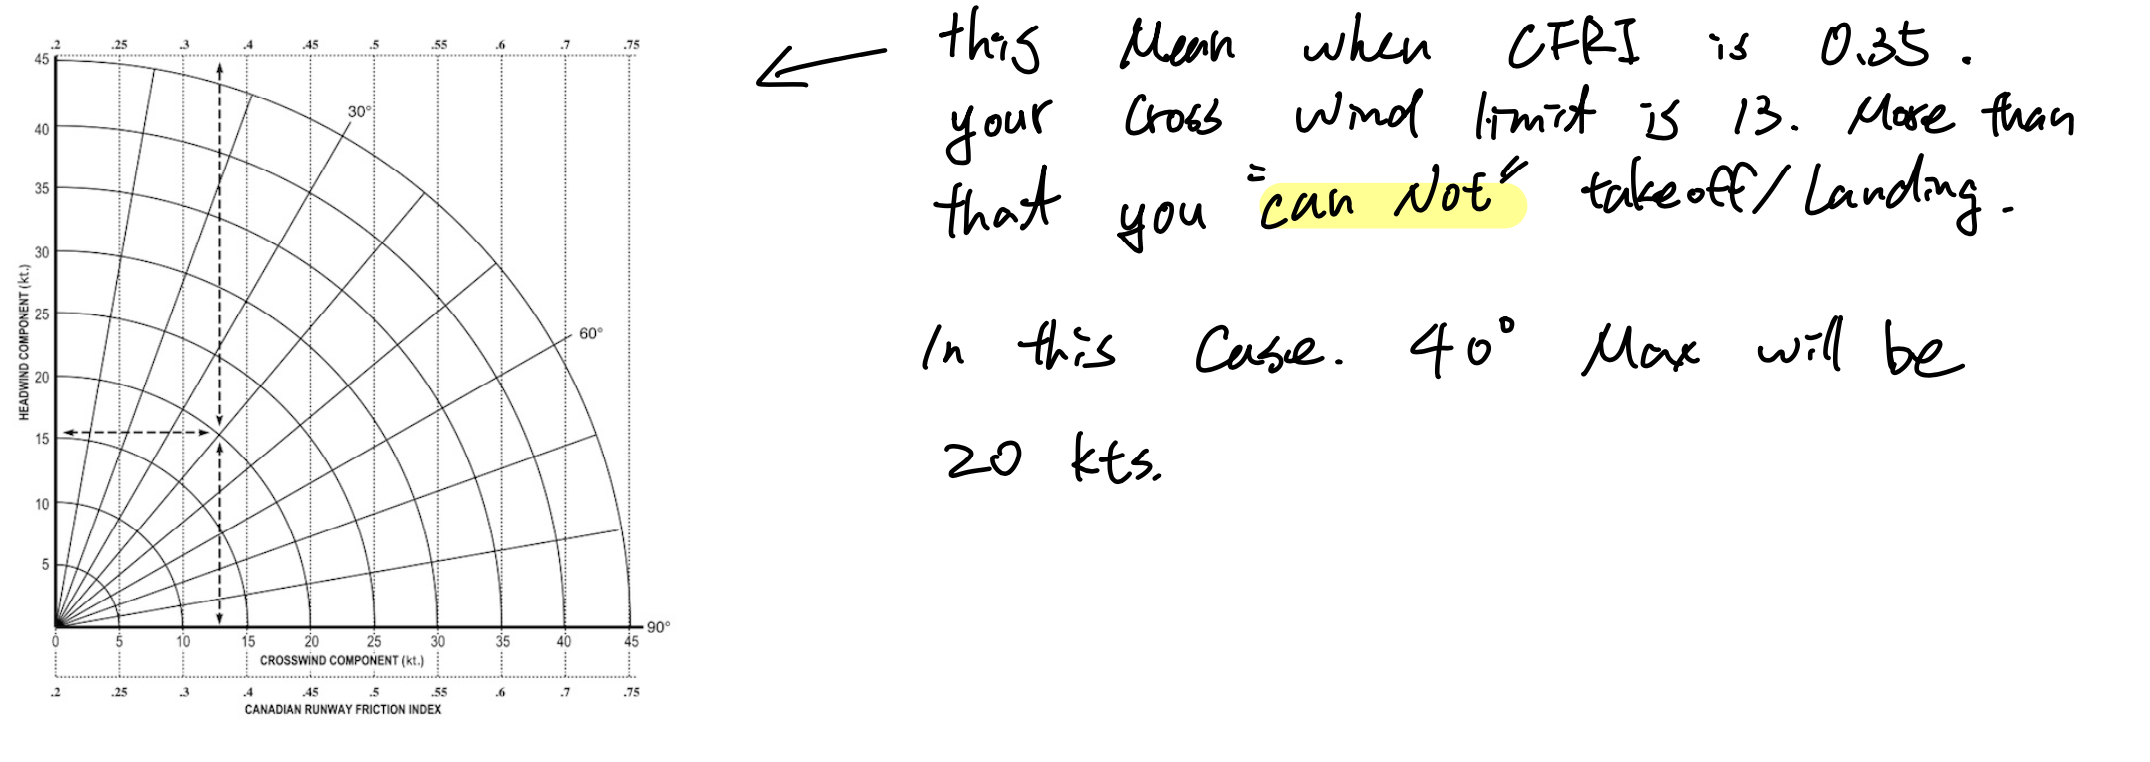 .2 .25 .3 .4 .45 .5 .55 .6 .7 .75
45
40
35
30
25
20
15
10
5
HEADWIND COMPONENT (kt.)
30°
60°
90°
0 5 10 15 20 25 30 35 40 45
CROSSWIND COMPONENT (kt.)
.2 .25 .3 .4 .45 .5 .55 .6 .7 .75
CANADIAN RUNWAY FRICTION INDEX
this Mean when CFRI is 0.35.
your Cross wind limit is 13. More than
that you "can Not" takeoff/Landing.
In this Case. 40° Max will be
20 kts.